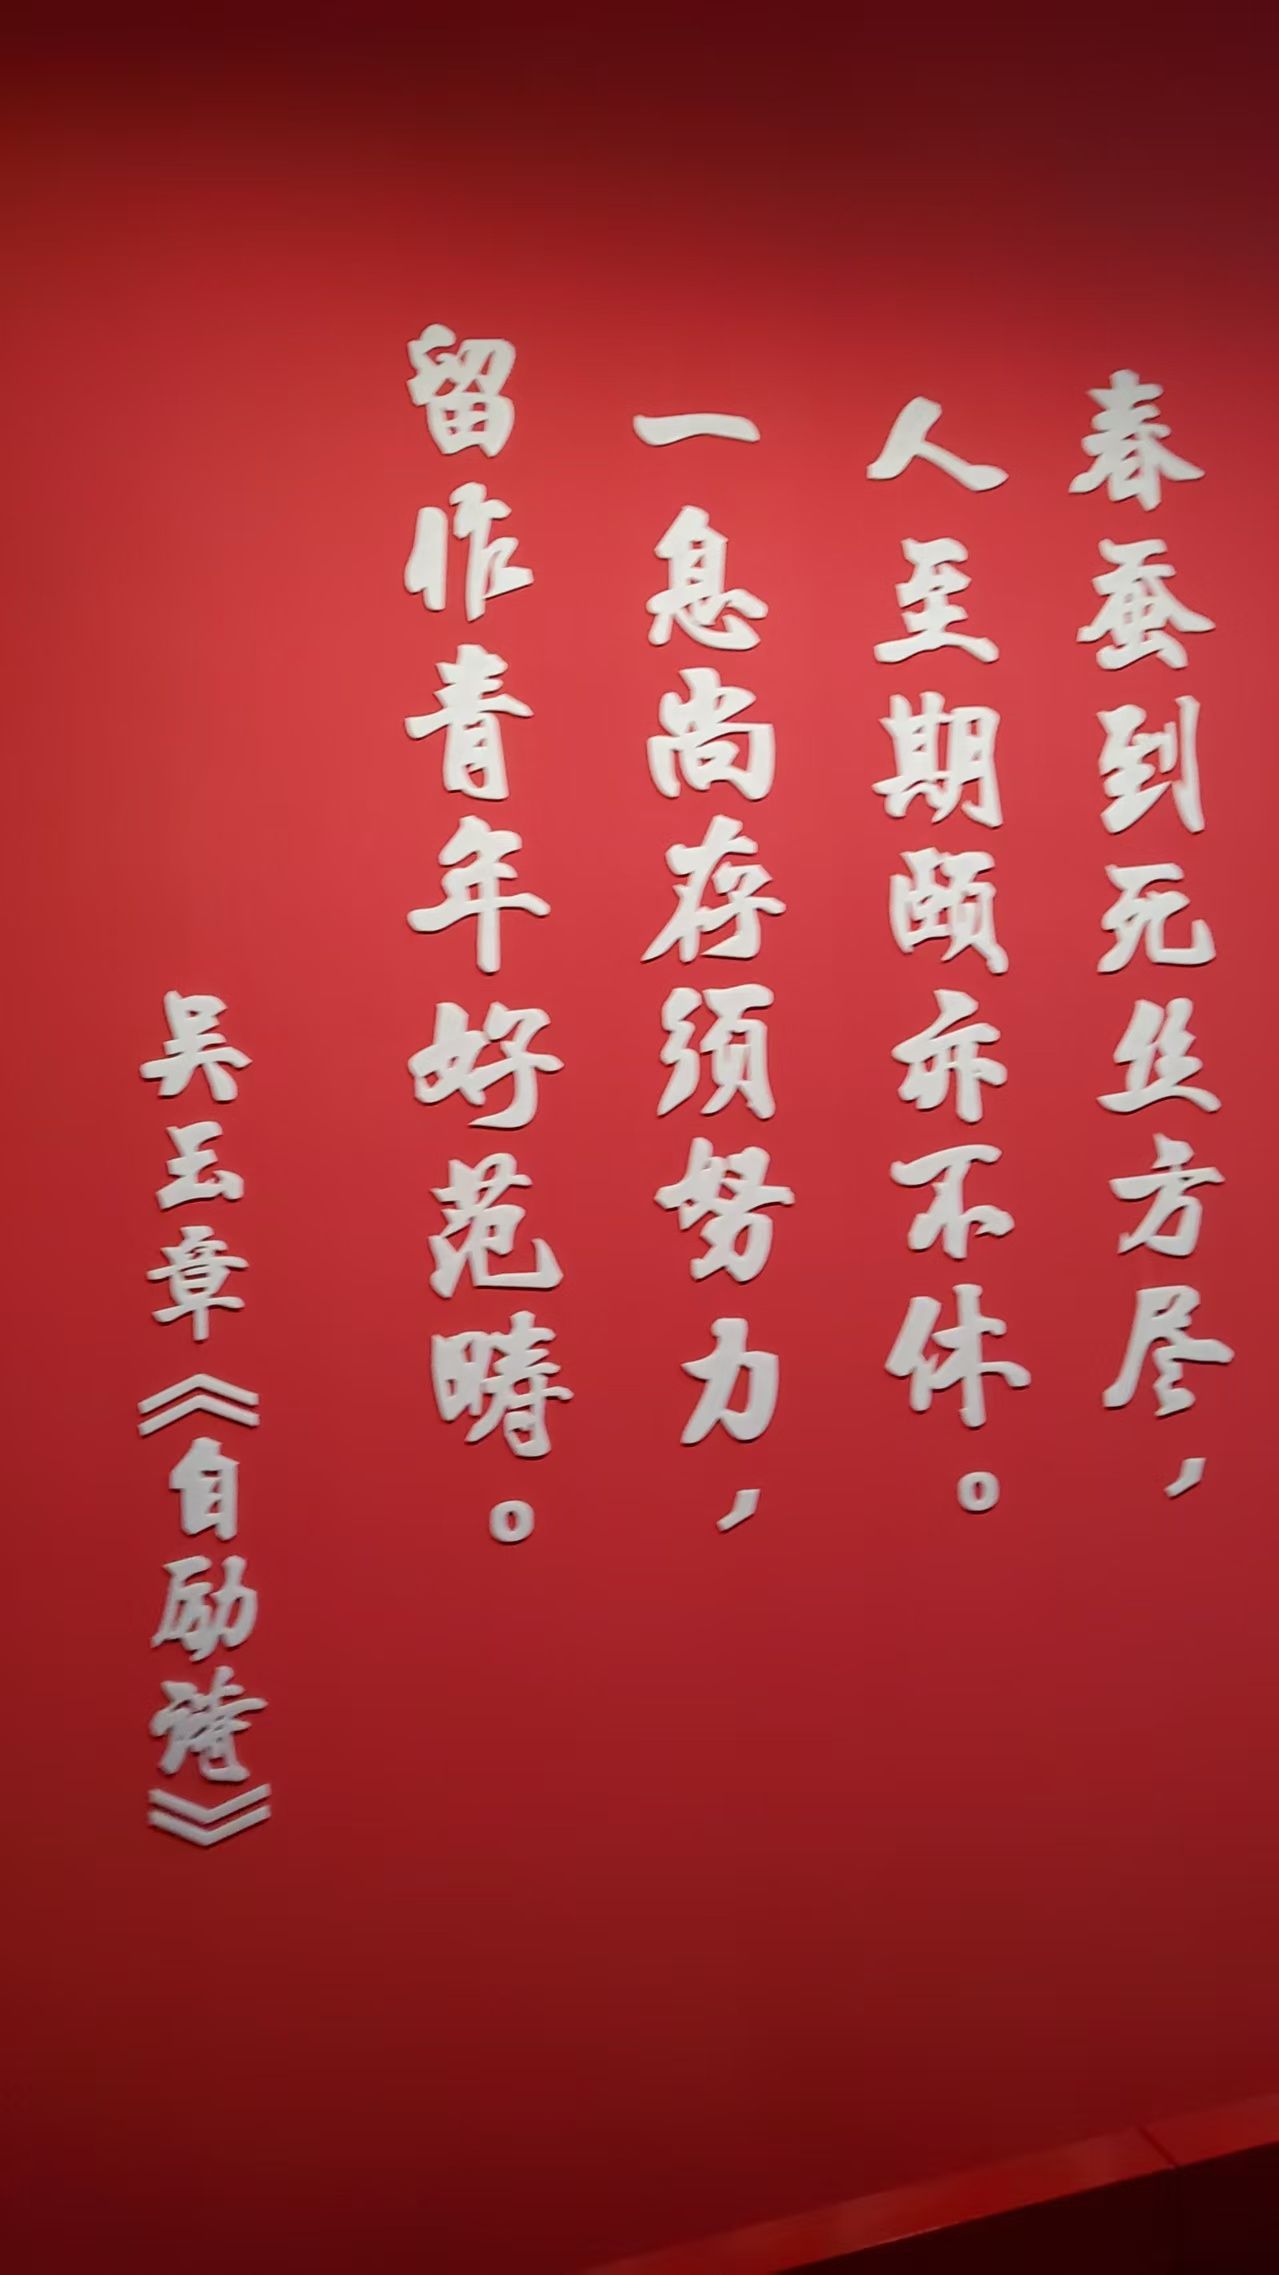 春蚕到死丝方尽，
人至期颐亦不休。
一息尚存须努力，
留作青年好范畴。
吴玉章《自励诗》